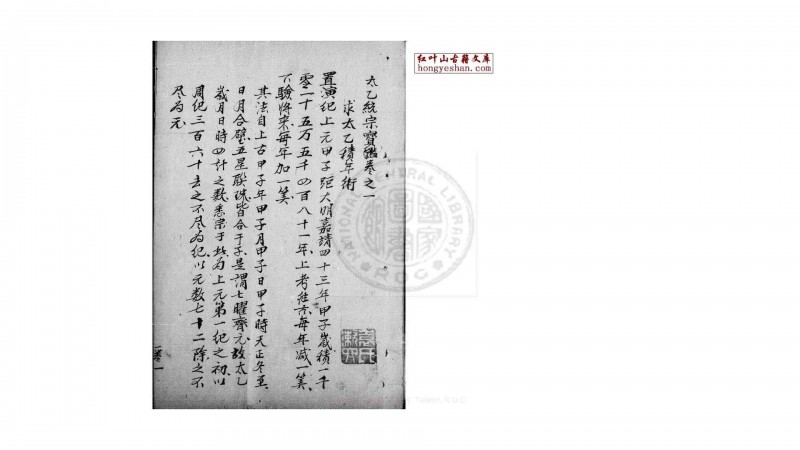 太乙統宗寶鑑卷之一
求太乙積年術
置演紀上元甲子距大明嘉請四十三年甲子歲積一千
零一十五万五千四百八十一年上考往古每年減一筭
下驗將來每年加一筭
其法自上古甲子年甲子月甲子日甲子時天正冬至
日月合璧五星聯珠皆合于子是謂七曜齊元故太乙
歲月日時四計之數悉宗于此為上元第一紀之初以
周紀三百六十去之不尽為紀以元數七十二除之不
尽為元
卷一
红叶山古籍文库
hongyeshan.com
NATIONAL CENTRAL LIBRARY
R.O.C
國家